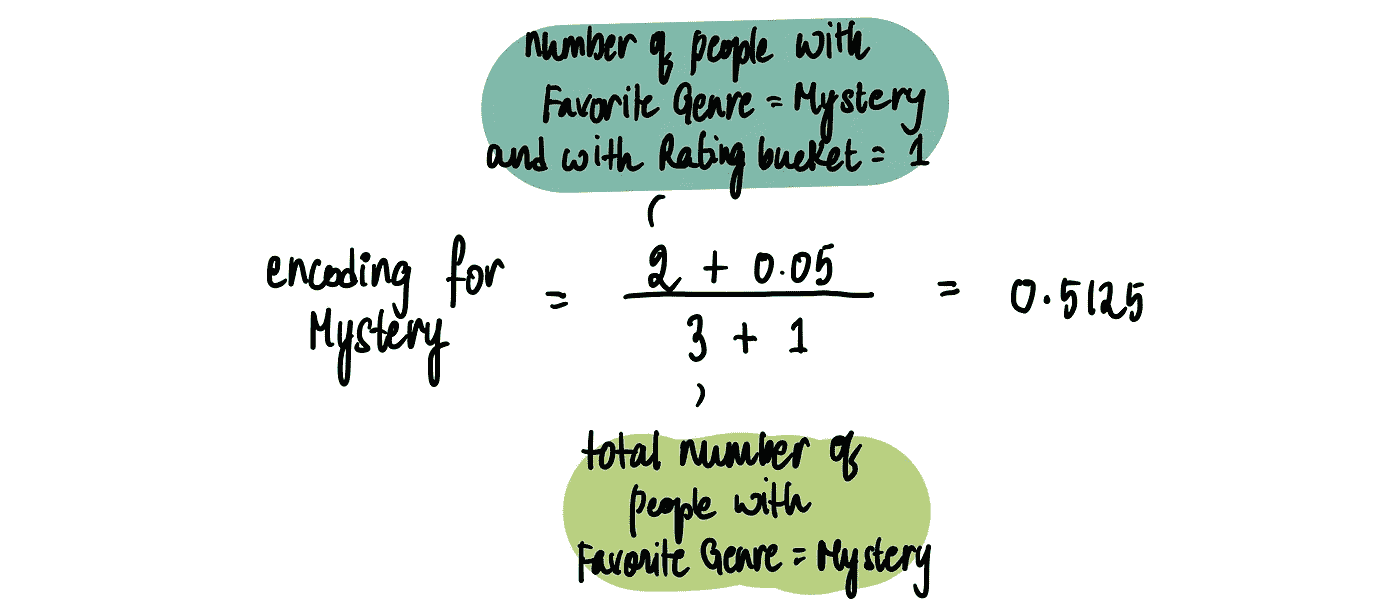 number of people with
Favorite Genre = Mystery
and with Rating bucket = 1
encoding for
Mystery
=
2 + 0.05
3 + 1
= 0.5125
total number of
people with
Favorite Genre = Mystery